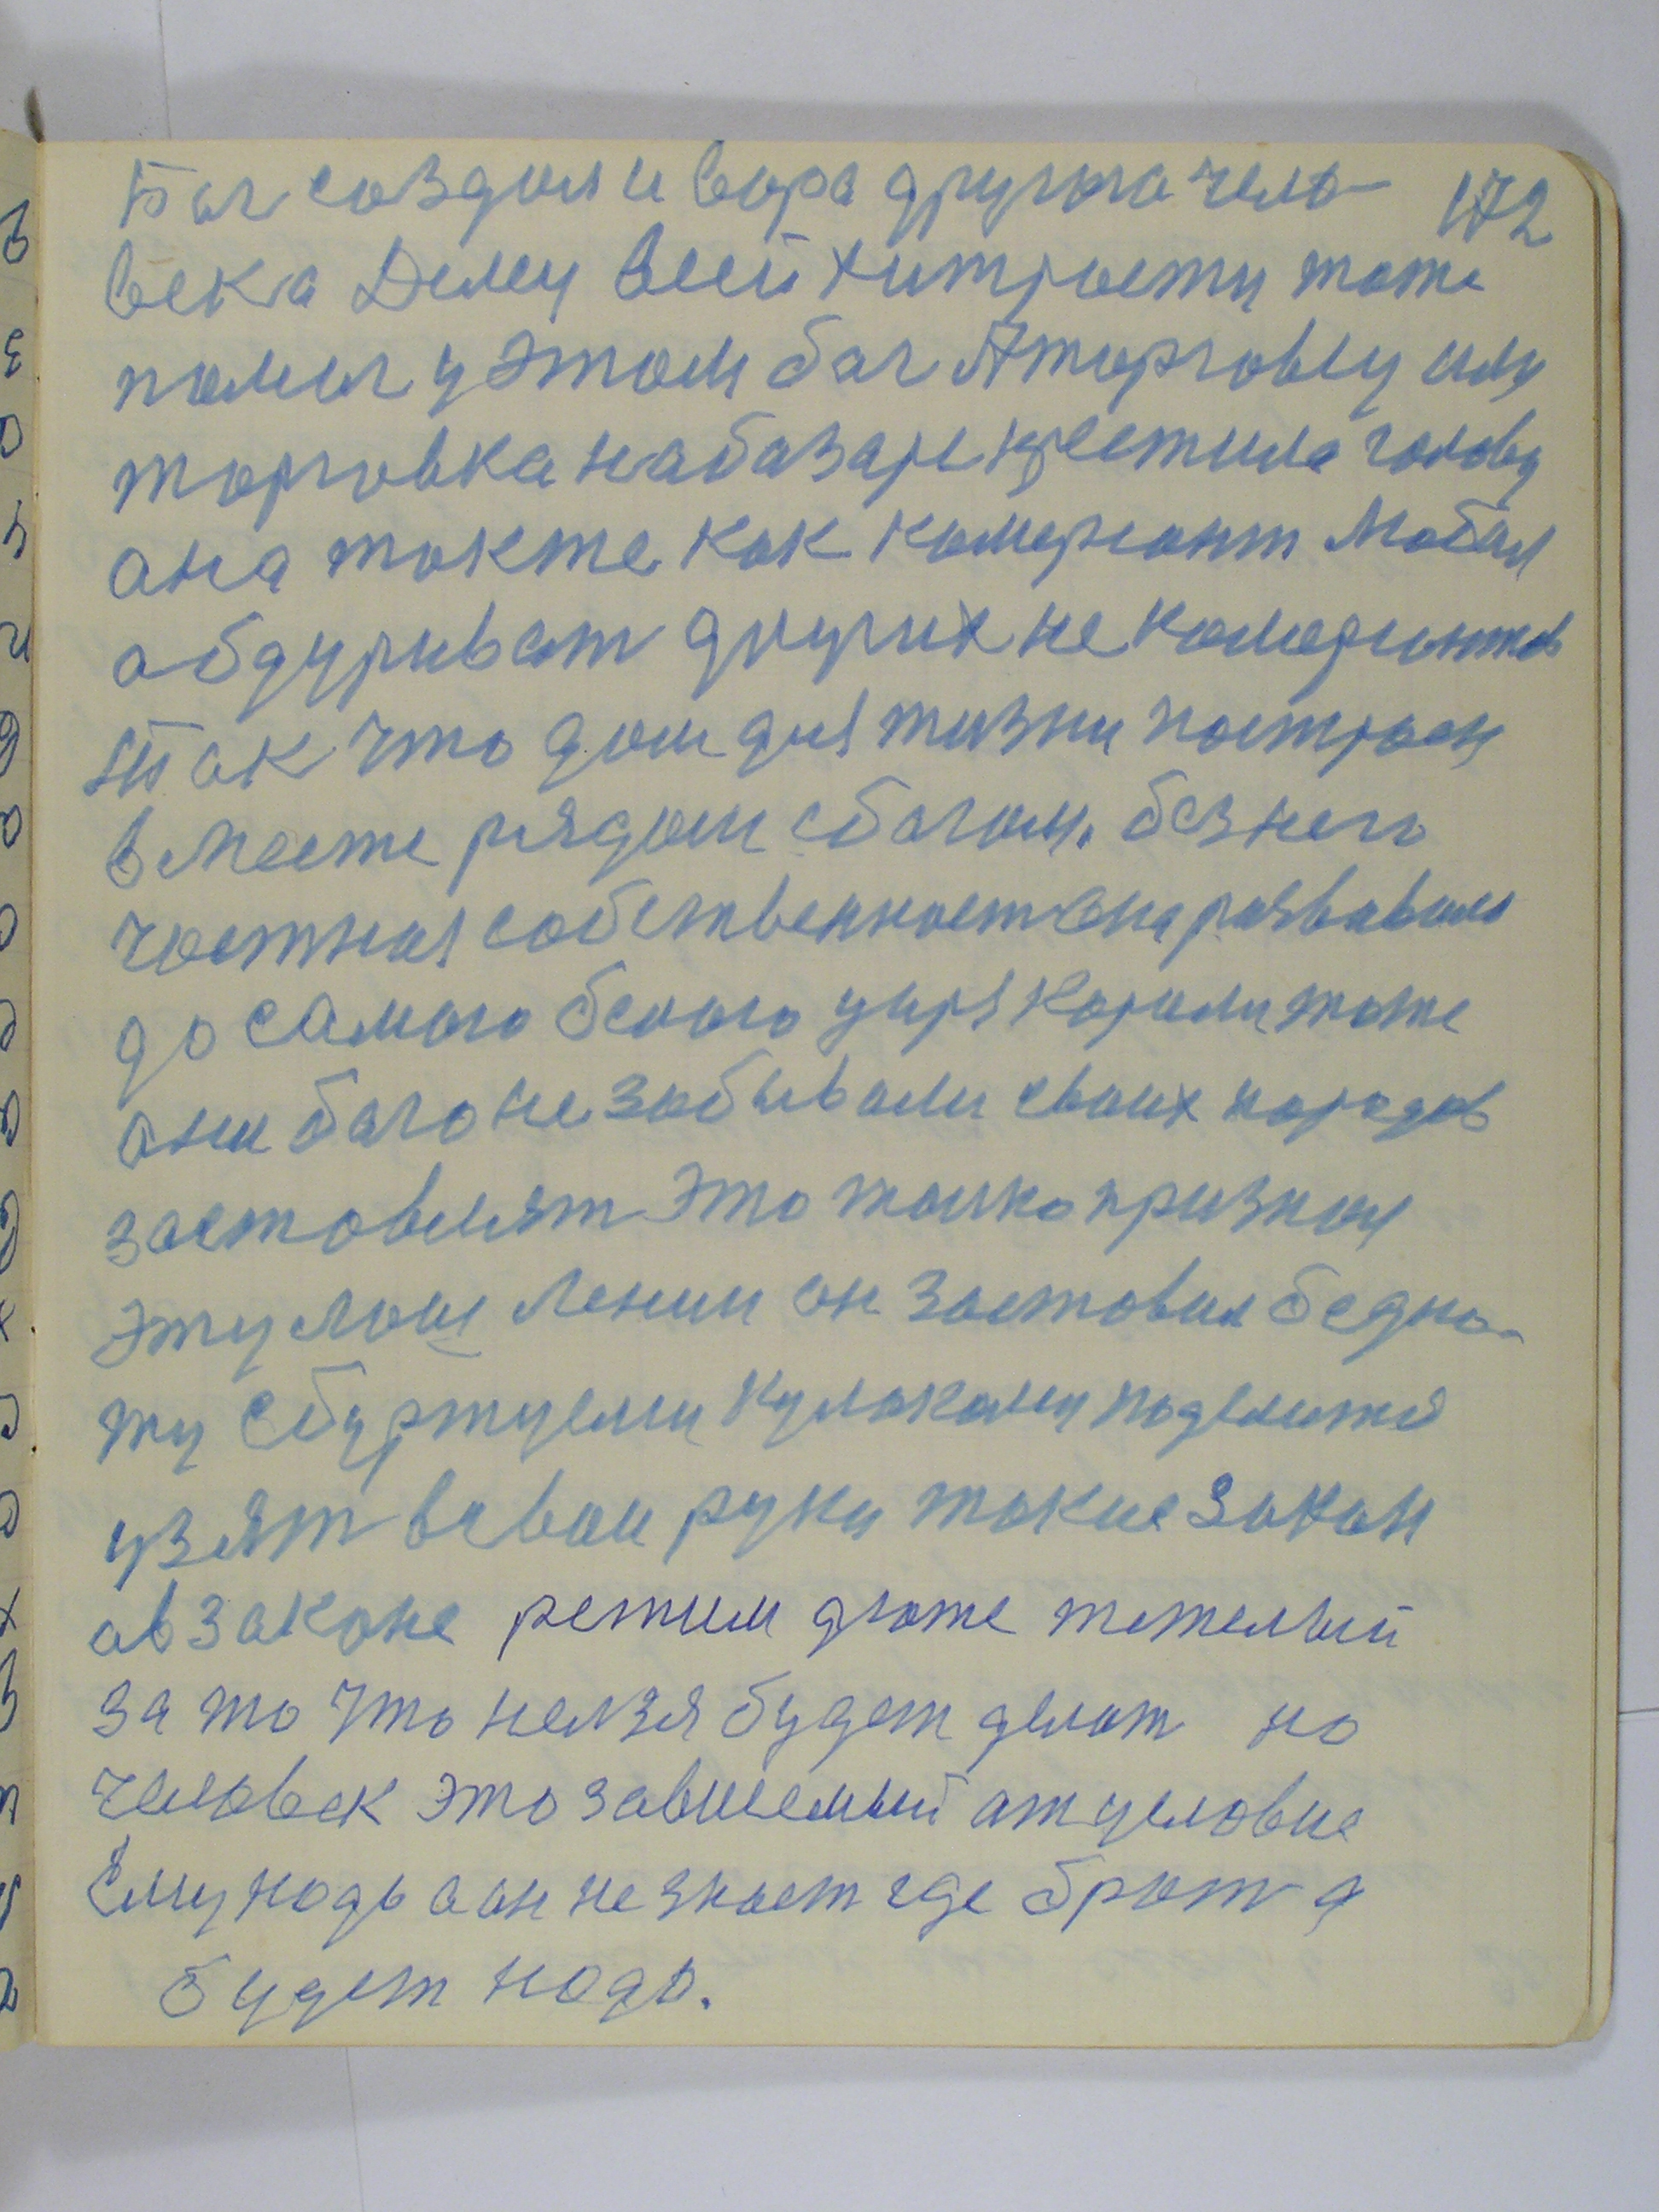 Бог создал и вора другога чело 172
века Дему всей хитрости тоже
помог у этом бог Аторговцу или
торговка набазаре крестила голову
она также как комерсант Мобел
обдуриват других не комерсантов
Так что дом для жизни построен
вместе рядом сбогом. без него
частная собственност она развивала
до самого белого царя Корили тоже
они бога не забывали своих народов
заставлят это толко признал
эту лош Ленин он заставил бедно-
ту сбуржуеми кулаками поделится
узят всвои руки такие закон
ав законе режим дюже тежелый
за то что нелзя будет делат но
человек это зависемый ат условие
Ему надо а он не знает где брат а
будет надо.